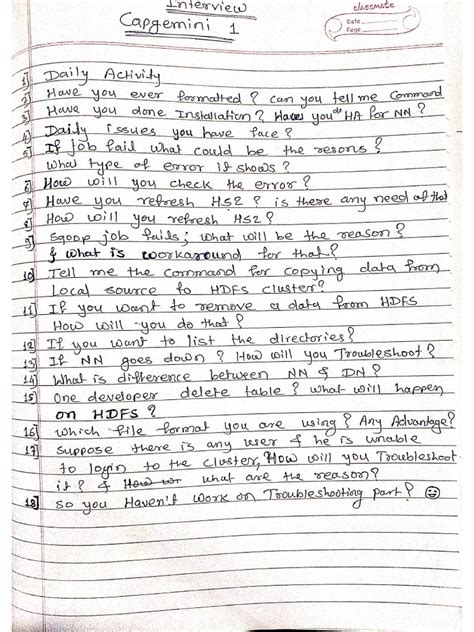 Interview
Capgemini 1
classmate
Date
Page
1] Daily Activity
2] Have you ever formatted? can you tell me Command
3] Have you done Installation? Have you do HA for NN?
4] Daily issues you have face?
5] If job fail what could be the resons?
What type of error it shows?
6] How will you check the error?
7] Have you refresh HS2? is there any need of that
8] How will you refresh HS2?
9] Sqoop job fails; what will be the reason?
& what is workaround for that?
10] Tell me the command for copying data from
Local source to HDFS cluster?
11] If you want to remove a data from HDFS
How will you do that?
12] If you want to list the directories?
13] If NN goes down? How will you Troubleshoot?
14] What is difference between NN & DN?
15] One developer delete table? what will happen
on HDFS?
16] Which file format you are using? Any Advantage?
17] Suppose there is any user & he is unable
to login to the cluster, How will you Troubleshoot
it? & How wi what are the reason?
18] so you Haven't work on Troubleshooting part? ☺